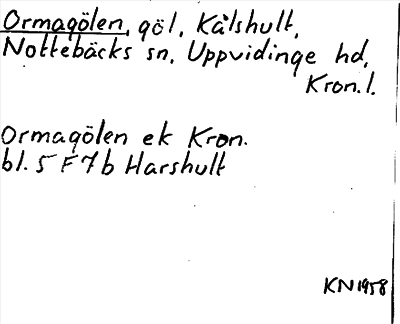 Ormagölen, göl, Kålshult,
Nottebäcks sn, Uppvidinge hd,
Kron. l.
Ormagölen ek Kron.
bl. 5 F 7 b Harshult
KN 1958